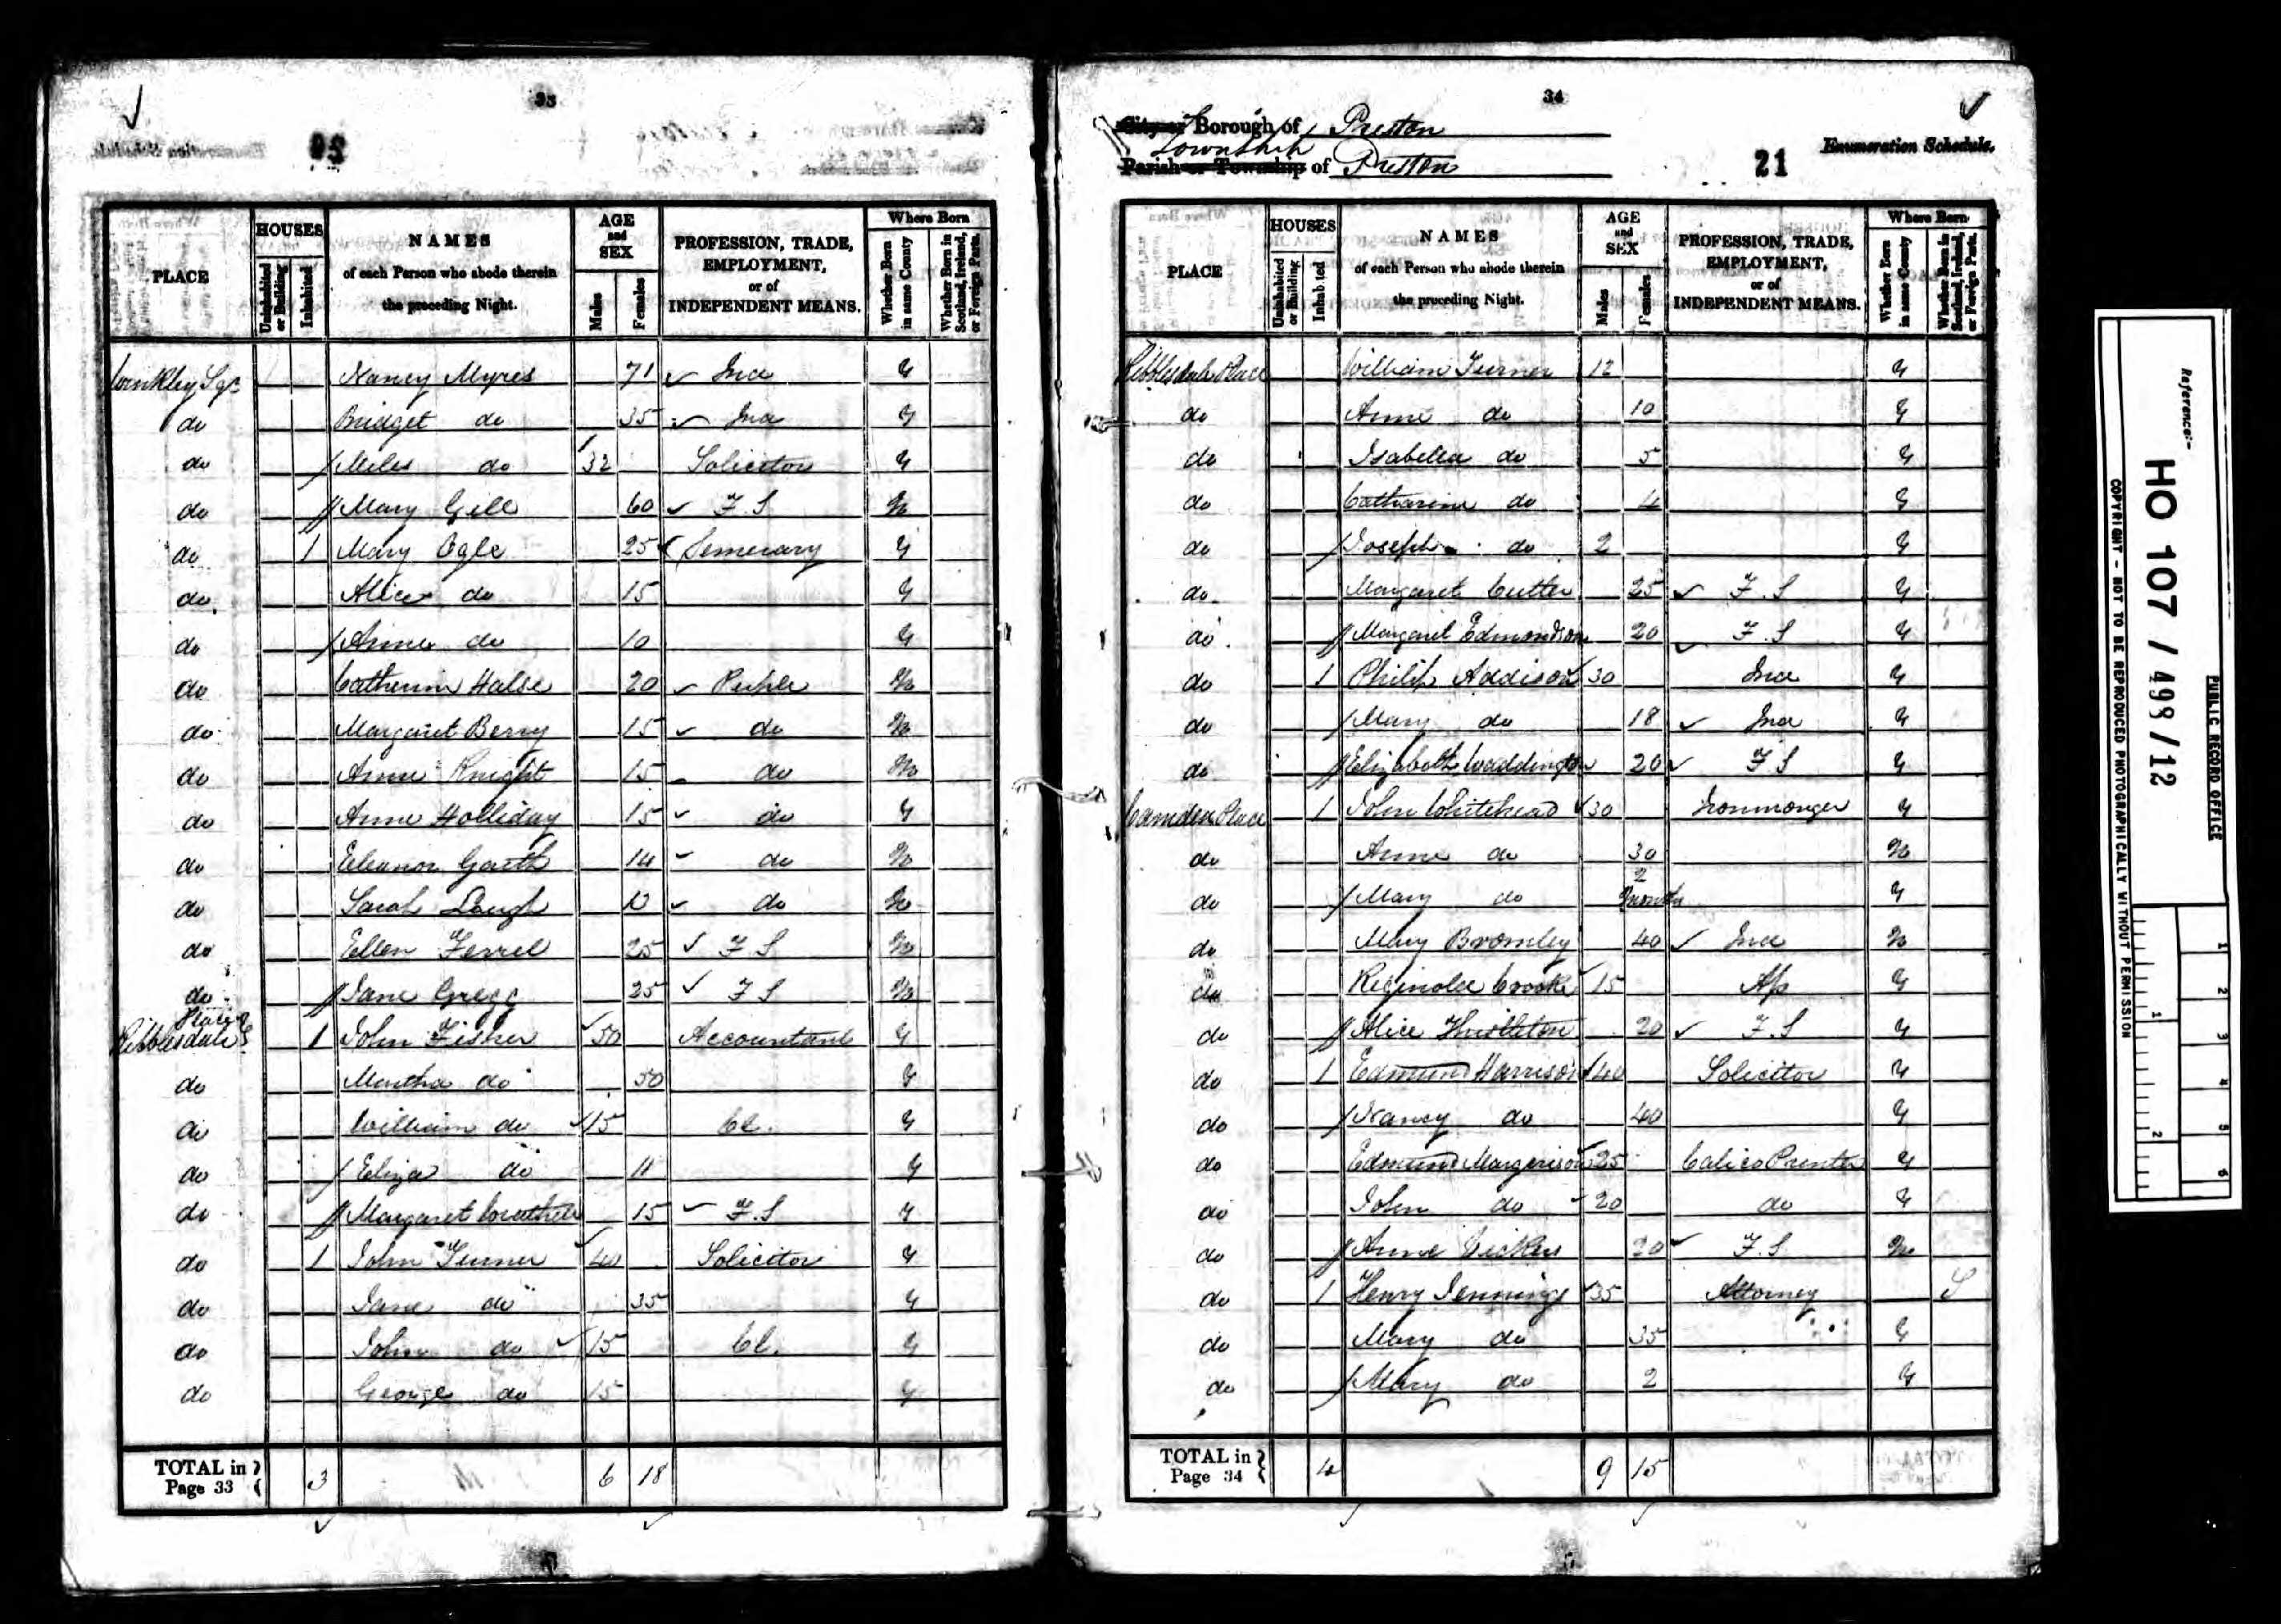 33
PLACE
HOUSES
Uninhabited or Building
Inhabited
NAMES
of each Person who abode therein
the preceding Night.
AGE
and
SEX
Males
Females
PROFESSION, TRADE,
EMPLOYMENT,
or of
INDEPENDENT MEANS.
Where Born
Whether Born in same County
Whether Born in Scotland, Ireland, or Foreign Parts.
Winkley Sqr Nancy Myres 71 Ind Y
do Bridget do 35 Ind Y
do Miles do 32 Solicitor Y
do Mary Gill 60 F S No
do 1 Mary Ogle 25 Semenary Y
do Alice do 15 Y
do Anne do 10 Y
do Catherine Halse 20 Puple No
do Margaret Berry 15 do No
do Anne Knight 15 do No
do Anne Holliday 15 do Y
do Eleanor Garth 14 do No
do Sarah Lough do No
do Ellen Ferrel 25 F S No
do Jane Gregg 25 F S No
Ribblesdale Place 1 John Fisher 50 Accountant Y
do Martha do 50 Y
do William do 15 Cl. Y
do Eliza do 11 Y
do Margaret 15 F.S Y
do 1 John Turner 40 Solicitor Y
do Jane do 35 Y
do John do 15 Cl. Y
do George do 15 Y
TOTAL in Page 33 3 6 18
34
City or Borough of Preston
Township
Parish or Township of Preston
21
Enumeration Schedule.
PLACE
HOUSES
Uninhabited or Building
Inhabited
NAMES
of each Person who abode therein
the preceding Night.
AGE
and
SEX
Males
Females
PROFESSION, TRADE,
EMPLOYMENT,
or of
INDEPENDENT MEANS.
Where Born
Whether Born in same County
Whether Born in Scotland, Ireland, or Foreign Parts.
Ribblesdale Place William Turner 12 Y
do Anne do 10 Y
do Isabella do 5 Y
do Catharine do 4 Y
do Joseph do 2 Y
do Margaret Cutler 25 F.S Y
do Margaret Edmondson 20 F.S Y
do 1 Philip Addison 30 Ind Y
do Mary do 18 Ind Y
do Elizabeth Waddington 20 F S Y
Camden Place 1 John Whitehead 30 Ironmonger Y
do Anne do 30 No
do Mary do 2 months Y
do Mary Bromley 40 Ind No
do Reginold Crooke 15 Ap Y
do Alice 20 F.S Y
do 1 Edmund Harrison 40 Solicitor Y
do Nancy do 40 Y
do Edmund Margerison 25 Calico Printer Y
do John do 20 do Y
do Anne Vickers 20 F.S No
do 1 Henry Jennings 35 Attorney S
do Mary do 35 Y
do Mary do 2 Y
TOTAL in Page 34 4 9 15
Reference:-
HO 107 / 498 / 12
PUBLIC RECORD OFFICE
COPYRIGHT - NOT TO BE REPRODUCED PHOTOGRAPHICALLY WITHOUT PERMISSION
1 2 3 4 5 6
1 2